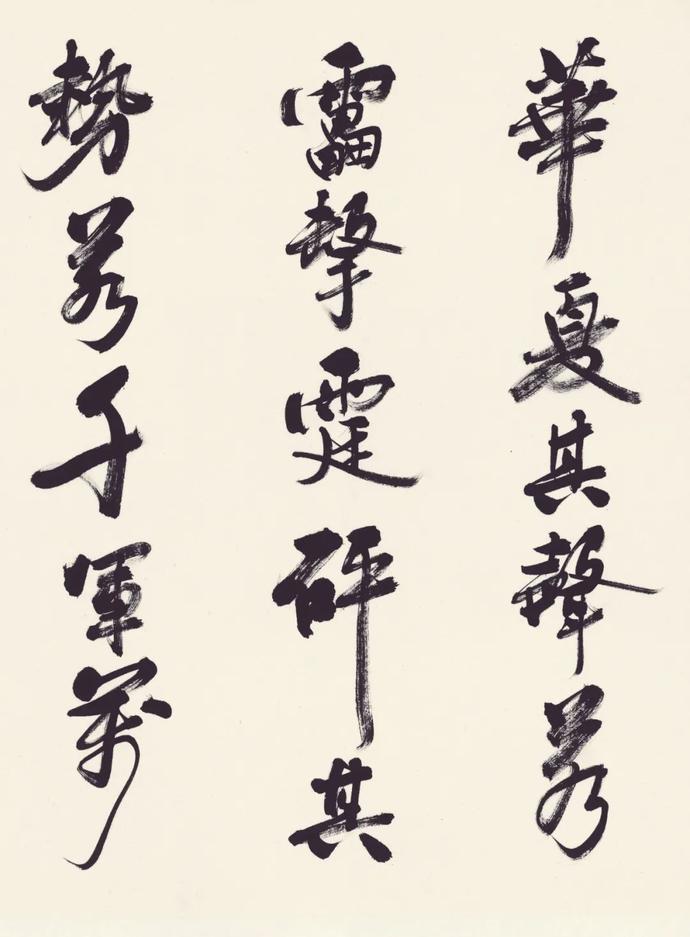 華夏其聲若
雷擊霆砰其
勢若千軍萬